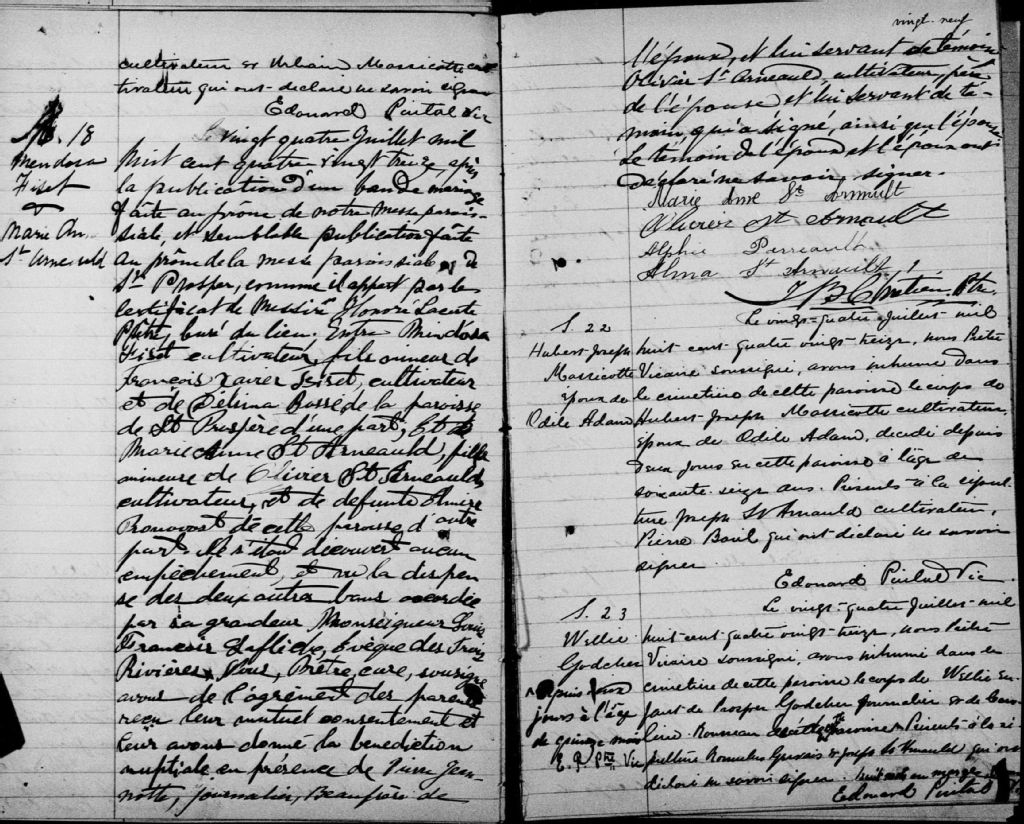 cultivateur & Urbain Massicotte cul
tivateur qui ont déclaré ne savoir signer
Edouard Pintal Vic
M. 18
Mendosa
Fiset
&
Marie An.
St Arneauld
Le vingt quatre Juillet mil
huit cent quatre vingt treize, après
la publication d'un ban de mariage
faite au prône de notre messe parois-
siale, et semblable publication faite
au prône de la messe paroissiale de
St. Prosper, comme il appert par le
certificat de Messire Honoré Lacerte
Ptre, Curé du lieu. Entre Mindosa
Fiset cultivateur, fils mineur de
François Xavier Feiset, cultivateur
et de Délima Bassé de la paroisse
de St Prospère d'une part; Et de
Marie Anne St Arneauld, fille
mineure de Olivier St Arneauld
cultivateur, et de defunte Elmire
Pronovost de cette paroisse d'autre
part. Ne s'étant découvert aucun
empêchement, et vu la dispen
se des deux autres bans accordée
par sa grandeur Monseigneur Louis
François Lafleche, Evêque des Trois
Rivières, Nous, Prêtre, curé, soussigné
avons de l'agrément des parents
reçu leur mutuel consentement et
leur avons donné la bénédiction
nuptiale en présence de Pierre Jean-
notte, journalier, Beaufrère de
vingt-neuf
l'époux, et lui servant de témoin
Olivier St. Arneauld, cultivateur, père
de l'épouse et lui servant de té-
moin qui a signé, ainsi que l'épouse
Le témoin de l'époux et l'époux ont
déclaré ne savoir signer.
Marie Anne St Arnault
Olivier St Arnault
Alphie Perreault
Alma St Arnault
J B Chrétien, Ptre.
S. 22
Hubert-Joseph
Massicotte
Epoux de
Odile Adam
Le vingt-quatre Juillet mil
huit cent quatre vingt-treize, nous Prêtre
Vicaire soussigné, avons inhumé dans
le cimetière de cette paroisse le corps de
Hubert-Joseph Massicotte cultivateur,
Epoux de Odile Adam, décédé depuis
deux jours en cette paroisse à l'âge de
soixante seize ans. Présents à la sépul
ture Joseph St Arnauld cultivateur,
Pierre Baril qui ont déclaré ne savoir
signer
Edouard Pintal Vic.
S. 23
Willie
Godcher
depuis deux
jours à l'âge
de quinze mois
E. P. Ptre Vic
Le vingt-quatre Juillet mil
huit-cent quatre vingt-treize, nous Prêtre
Vicaire soussigné, avons inhumé dans le
cimetière de cette paroisse le corps de Willie en-
fant de Prosper Godcher journalier & de Caro
line Rousseau décédé paroisse Présents à la sé
pulture Romulus Gervais & Joseph St Arnauld qui ont
déclaré ne savoir signer. huit mots en marge
Edouard Pintal